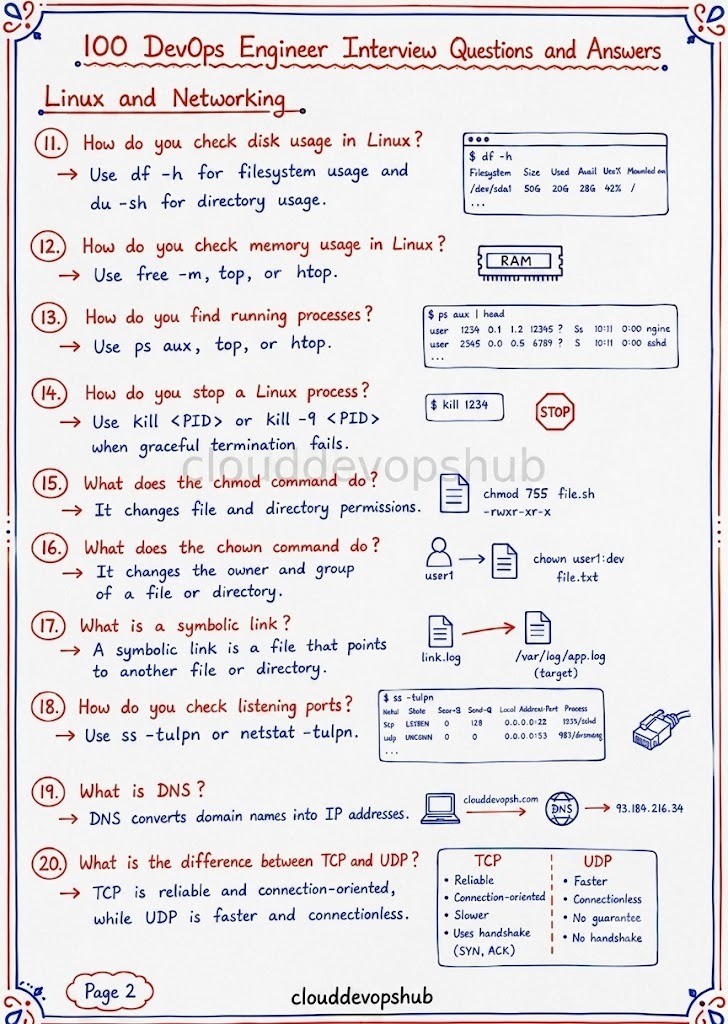 100 DevOps Engineer Interview Questions and Answers
Linux and Networking
11. How do you check disk usage in Linux?
→ Use df -h for filesystem usage and
du -sh for directory usage.
$ df -h
Filesystem Size Used Avail Use% Mounted on
/dev/sda1 50G 20G 28G 42% /
...
12. How do you check memory usage in Linux?
→ Use free -m, top, or htop.
RAM
13. How do you find running processes?
→ Use ps aux, top, or htop.
$ ps aux | head
user 1234 0.1 1.2 12345 ? Ss 10:11 0:00 ngine
user 2545 0.0 0.5 6789 ? S 10:11 0:00 sshd
...
14. How do you stop a Linux process?
→ Use kill <PID> or kill -9 <PID>
when graceful termination fails.
$ kill 1234
STOP
clouddevopshub
15. What does the chmod command do?
→ It changes file and directory permissions.
chmod 755 file.sh
-rwxr-xr-x
16. What does the chown command do?
→ It changes the owner and group
of a file or directory.
user1
chown user1:dev
file.txt
17. What is a symbolic link?
→ A symbolic link is a file that points
to another file or directory.
link.log
/var/log/app.log
(target)
18. How do you check listening ports?
→ Use ss -tulpn or netstat -tulpn.
$ ss -tulpn
State Send-Q Process
0 128 0.0.0.0:22
udp 0 0 0.0.0.0:53
...
19. What is DNS?
→ DNS converts domain names into IP addresses.
clouddevopsh.com
DNS
93.184.216.34
20. What is the difference between TCP and UDP?
→ TCP is reliable and connection-oriented,
while UDP is faster and connectionless.
TCP
• Reliable
• Connection-oriented
• Slower
• Uses handshake
(SYN, ACK)
UDP
• Faster
• Connectionless
• No guarantee
• No handshake
Page 2
clouddevopshub